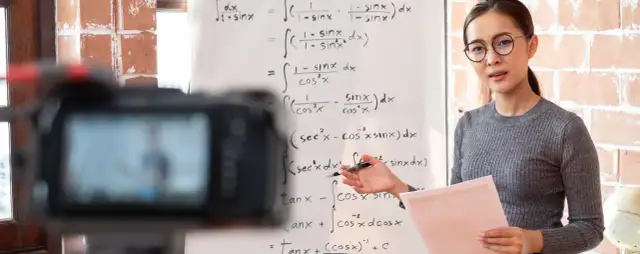 ∫ dx/1+sinx = ∫(1/1-sinx · 1-sinx/1-sinx)dx
= ∫(1-sinx/1-sin²x)dx
= ∫ 1-sinx/cos²x dx
∫(1/cos²x - sinx/cos²x)dx
(sec²x - cos⁻²x sinx)dx
∫sec²x dx sinx dx
tanx - ∫cos⁻²x
tanx + ∫cos⁻²x dcosx
= tanx + (cosx)⁻¹ + c